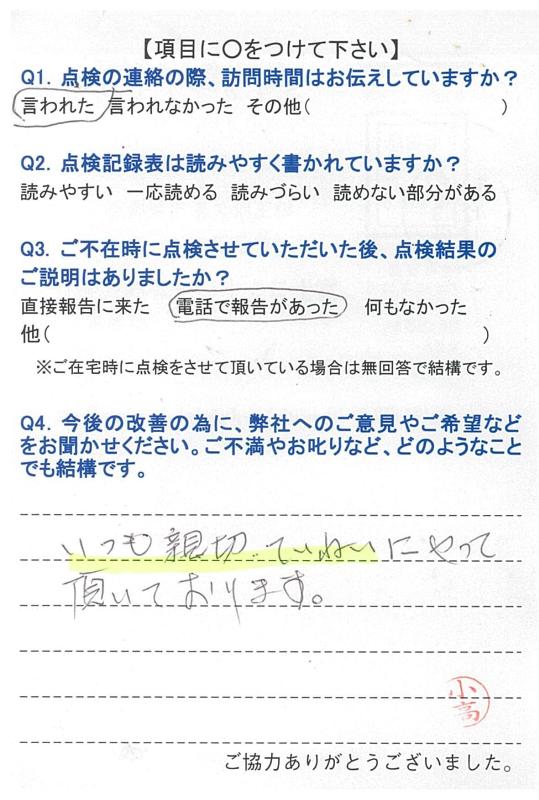 【項目に〇をつけて下さい】
Q1. 点検の連絡の際、訪問時間はお伝えしていますか？
言われた 言われなかった その他(　　　)
Q2. 点検記録表は読みやすく書かれていますか？
読みやすい 一応読める 読みづらい 読めない部分がある
Q3. ご不在時に点検させていただいた後、点検結果の
ご説明はありましたか？
直接報告に来た 電話で報告があった 何もなかった
他(　　　)
※ご在宅時に点検をさせて頂いている場合は無回答で結構です。
Q4. 今後の改善の為に、弊社へのご意見やご希望など
をお聞かせください。ご不満やお叱りなど、どのようなこと
でも結構です。
いつも親切、ていねいにやって
頂いております。
小高
ご協力ありがとうございました。